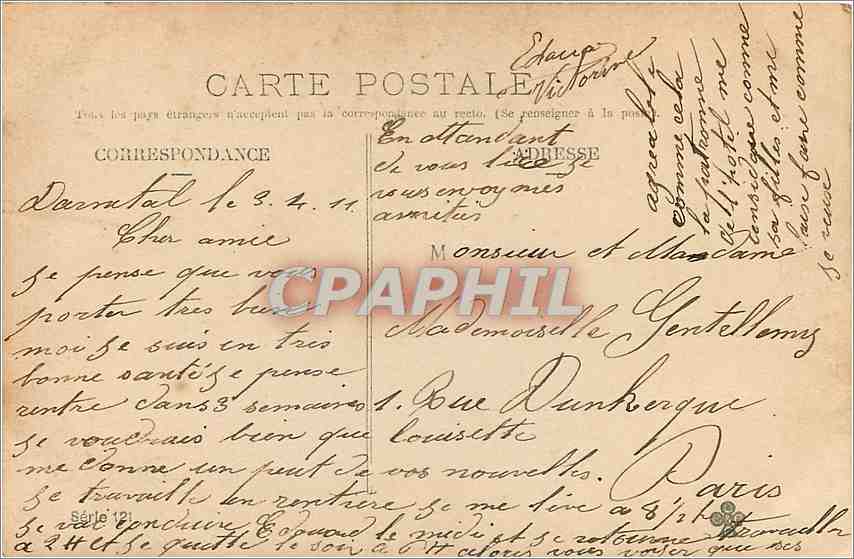 CARTE POSTALE
Tous les pays étrangers n'acceptent pas la correspondance au recto. (Se renseigner à la poste).
CORRESPONDANCE
ADRESSE
Darnetal le 3. 4. 11
Cher amie
Je pense que vous
porter tres bien
moi je suis en tres
bonne santé je pense
rentre dans 3 semaines
je voudrais bien que Louisette
me donne un peut de vos nouvelles.
je travaille en rentière je me live à 8 1/2 h
je vai conduire Edouard le midi et je retourne travailler
a 2 H et je quitte le soir a 6 H alors vous voyer que ses
agreable
comme cela
la patronne
de l'hotel me
considere comme
sa filles et me
laise faire comme
je veuse
En attendant
de vous lire je
vous envoy mes
amitiés
Victorine
Monsieur et Madame
Mademoiselle Gentellemy
1. Rue Dunkerque
Paris
Série 121
CPAPHIL